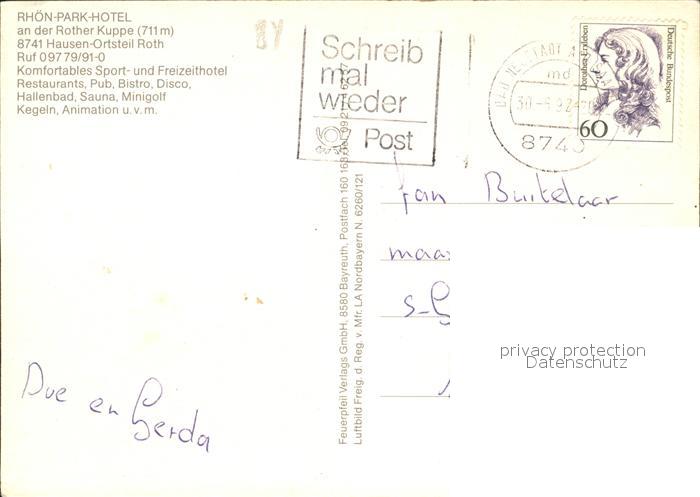 RHÖN-PARK-HOTEL
an der Rother Kuppe (711 m)
8741 Hausen-Ortsteil Roth
Ruf 0 97 79/91-0
Komfortables Sport- und Freizeithotel
Restaurants, Pub, Bistro, Disco,
Hallenbad, Sauna, Minigolf
Kegeln, Animation u. v. m.
Schreib
mal
wieder
Post
8740
Deutsche Bundespost
Dorothea Erxleben
60
Feuerpfeil Verlags GmbH, 8580 Bayreuth, Postfach 160 163
Luftbild Freig. d. Reg. v. Mfr. LA Nordbayern N. 6260/121
Jan Buitelaar
maas
privacy protection
Datenschutz
Due en Gerda